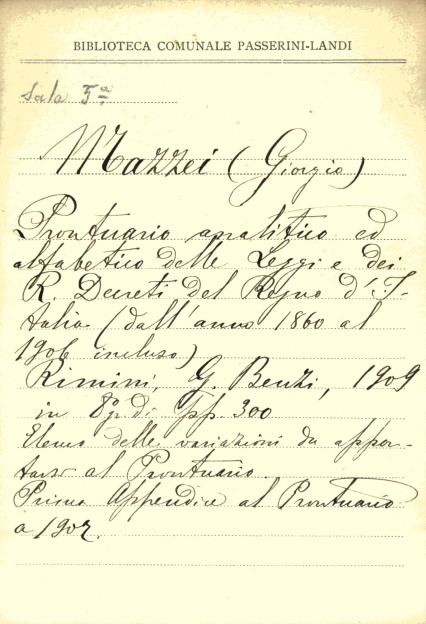 BIBLIOTECA COMUNALE PASSERINI-LANDI
Sala 5ª
Mazzei (Giorgio)
Prontuario analitico ed
alfabetico delle Leggi e dei
R. Decreti del Regno d'I-
talia (dall'anno 1860 al
1906 incluso)
Rimini, G. Benzi, 1909
in 8º gr. di pp. 300
Elenco delle variazioni da appor-
tarsi al Prontuario.
Prima Appendice al Prontuario
a 1907.